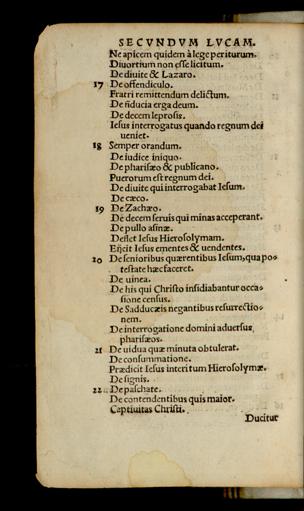 SECVNDVM LVCAM.
Ne apicem quidem à lege periturum.
Diuortium non esse licitum.
De diuite & Lazaro.
17 De offendiculo.
Fratri remittendum delictum.
De fiducia erga deum.
De decem leprosis.
Iesus interrogatus quando regnum dei
ueniet.
18 Semper orandum.
De iudice iniquo.
De pharisæo & publicano.
Puerorum est regnum dei.
De diuite qui interrogabat Iesum.
De cæco.
19 De Zachæo.
De decem seruis qui minas acceperant.
De pullo asinæ.
Deflet Iesus Hierosolymam.
Eijcit Iesus ementes & uendentes.
20 De senioribus quærentibus Iesum, qua po=
testate hæc faceret.
De uinea.
De his qui Christo insidiabantur occa=
sione census.
De Sadducæis negantibus resurrectio=
nem.
De interrogatione domini aduersus
pharisæos.
21 De uidua quæ minuta obtulerat.
De consummatione.
Prædicit Iesus interitum Hierosolymæ.
De signis.
22 De paschate.
De contendentibus quis maior.
Captiuitas Christi.
Ducitur